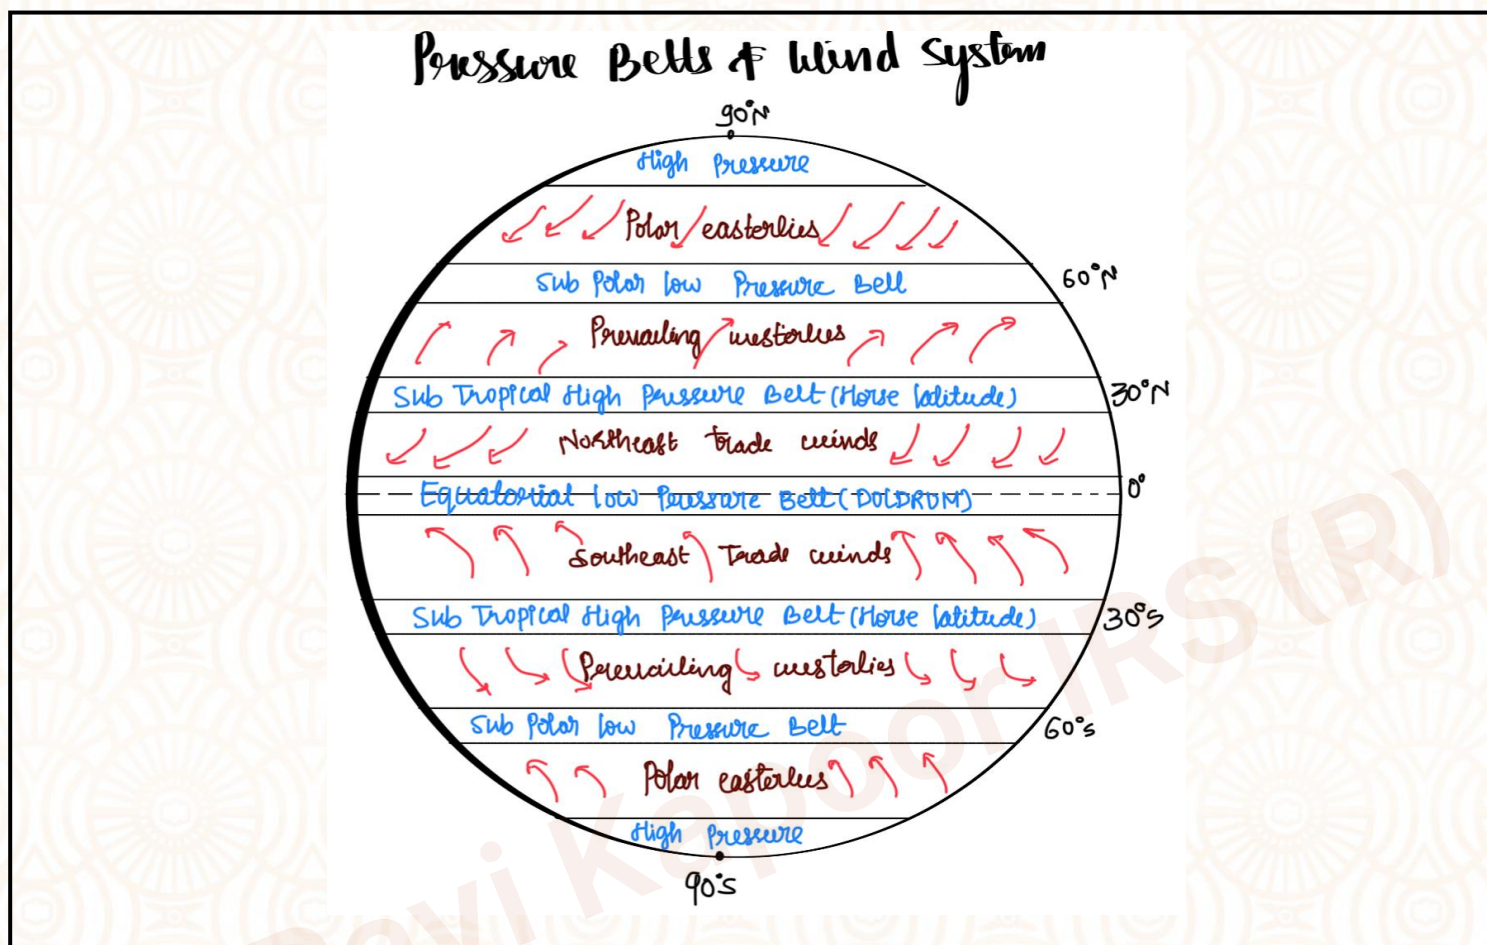 Pressure Belts & Wind System
90°N
High Pressure
Polar easterlies
Sub Polar low Pressure Belt
60°N
Prevailing westerlies
Sub Tropical High Pressure Belt (Horse latitude)
30°N
Northeast trade winds
Equatorial low Pressure Belt (DOLDRUM)
0°
Southeast Trade winds
Sub Tropical High Pressure Belt (Horse latitude)
30°S
Prevailing westerlies
Sub Polar low Pressure Belt
60°S
Polar easterlies
High Pressure
90°S
Ravi Kapoor IRS (R)